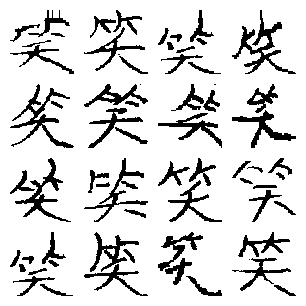 笑笑笑笑
笑笑笑笑
笑笑笑笑
笑笑笑笑